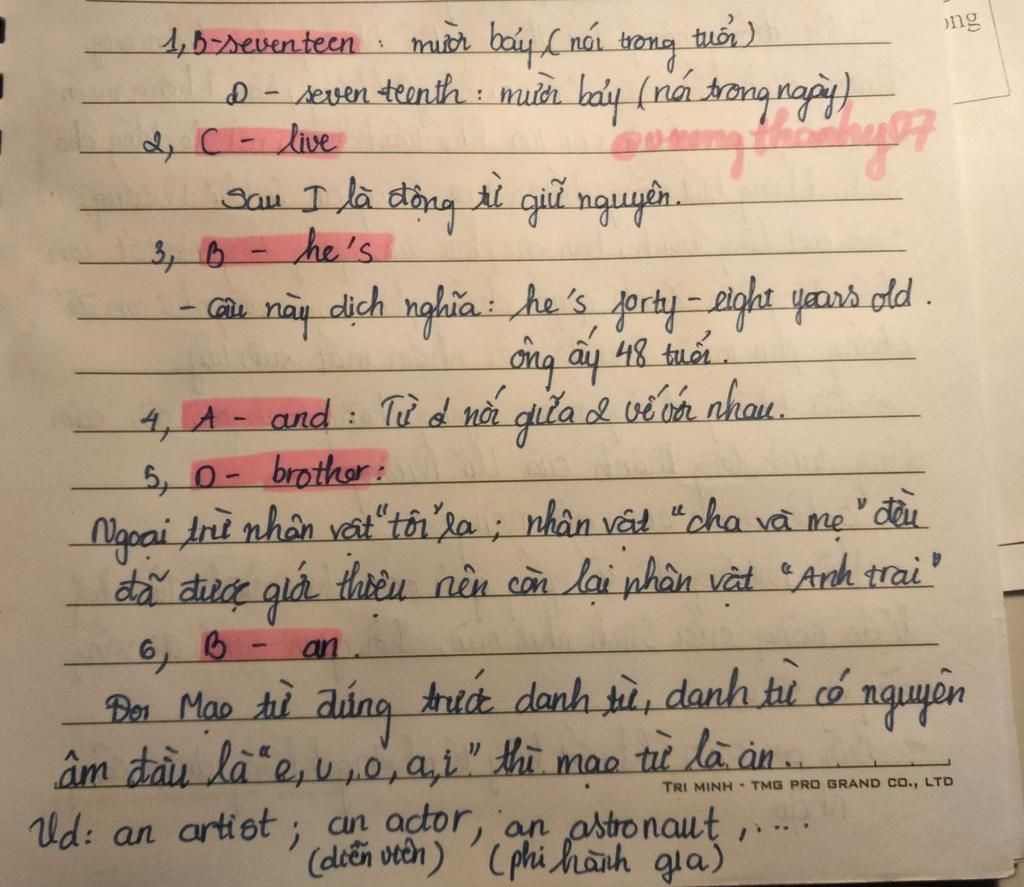 ong
1, B-seventeen : mười bảy (nói trong tuổi)
D - seventeenth : mười bảy (nói trong ngày)
2, C - live
@vuongthanhy07
Sau I là động từ giữ nguyên.
3, B - he's
- Câu này dịch nghĩa : he's forty-eight years old .
ông ấy 48 tuổi .
4, A - and : Từ để nối giữa 2 vế với nhau.
5, D - brother :
Ngoại trừ nhân vật "tôi" ra ; nhân vật "cha và mẹ" đều
đã được giới thiệu nên còn lại nhân vật "Anh trai"
6, B - an .
Mạo từ đứng trước danh từ, danh từ có nguyên
âm đầu là "e, u, o, a, i" thì mạo từ là an..
TRI MINH - TMG PRO GRAND CO., LTD
Vd: an artist ; an actor, an astronaut , .....
(diễn viên) (phi hành gia)